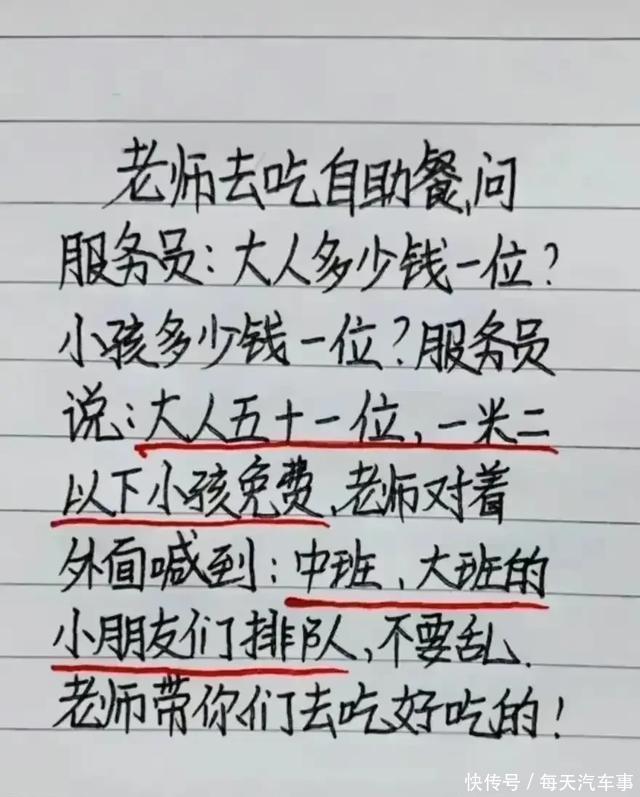 老师去吃自助餐,问
服务员:大人多少钱一位?
小孩多少钱一位?服务员
说:大人五十一位,一米二
以下小孩免费,老师对着
外面喊到:中班、大班的
小朋友们排队,不要乱.
老师带你们去吃好吃的!
快传号/每天汽车事